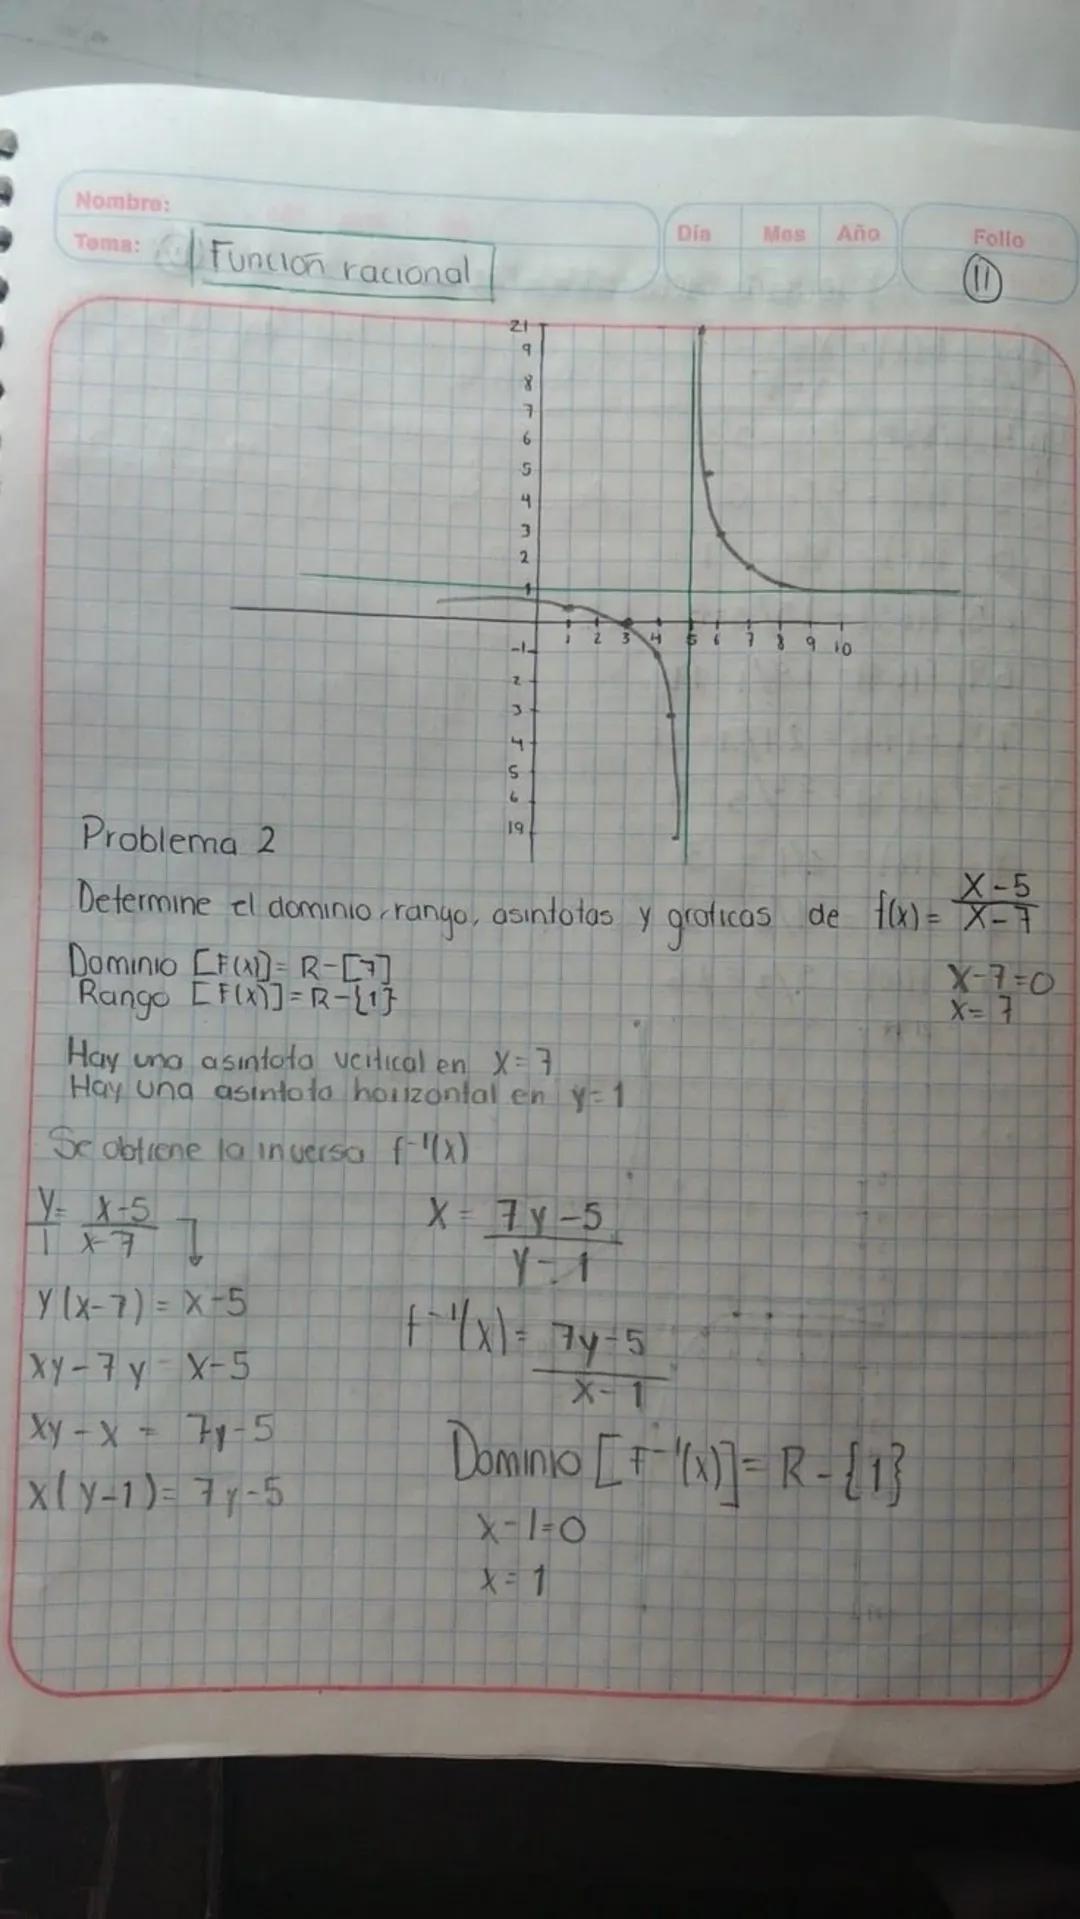 Nombre:
Tema: Función racional
Día Mes Año
Folio
11
21
9
8
7
6
5
4
3
2
1
1 2 3 4 5 6 7 8 9 10
-1
2
3
4
5
6
19
Problema 2
Determine el dominio, rango, asintotas y graficas de f(x) = x-5 / x-7
Dominio [F(x)] = R-[7]
Rango [F(x)] = R-{1}
x-7=0
x=7
Hay una asintota vertical en x=7
Hay una asintota horizontal en y=1
Se obtiene la inversa f-1(x)
y/1 = x-5 / x-7
y(x-7) = x-5
xy-7y = x-5
xy-x = 7y-5
x(y-1) = 7y-5
x = 7y-5 / y-1
f-1(x) = 7y-5 / x-1
Dominio [F-1(x)] = R-{1}
x-1=0
x=1